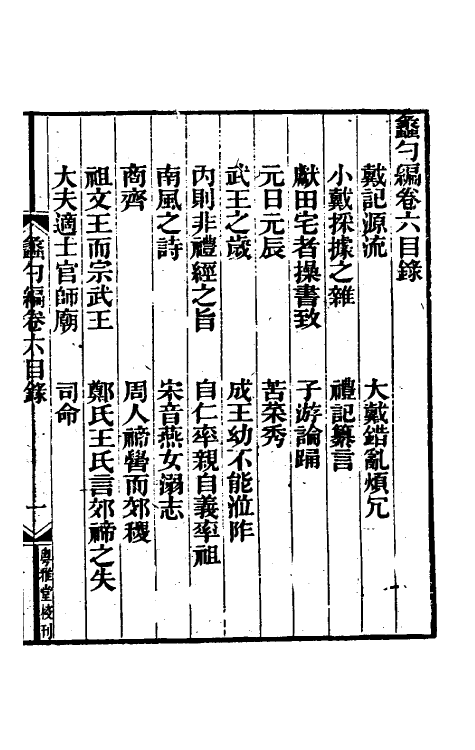 蠡勺編卷六目錄
戴記源流　大戴錯亂煩宂
小戴採據之雜　禮記纂言
獻田宅者操書致　子游論踊
元日元辰　苦菜秀
武王之歲　成王幼不能涖阼
內則非禮經之旨　自仁率親自義率祖
南風之詩　宋音燕女溺志
商齊　周人禘嚳而郊稷
祖文王而宗武王　鄭氏王氏言郊禘之失
大夫適士官師廟　司命
蠡勺編卷六目錄　一　粵雅堂校刊